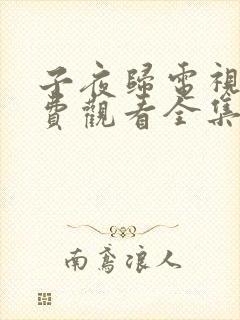 子夜歸電視
費觀看全集
南鸢浪人